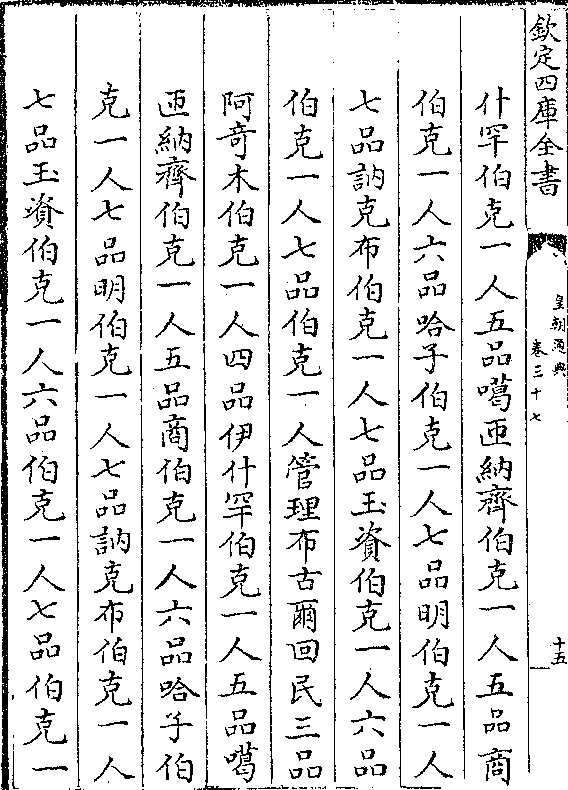 欽定四庫全書
皇朝通典
卷三十七
十五
什罕伯克一人五品噶匝納齊伯克一人五品商
伯克一人六品哈子伯克一人七品明伯克一人
七品訥克布伯克一人七品玉資伯克一人六品
伯克一人七品伯克一人管理布古爾回民三品
阿竒木伯克一人四品伊什罕伯克一人五品噶
匝納齊伯克一人五品商伯克一人六品哈子伯
克一人七品明伯克一人七品訥克布伯克一人
七品玉資伯克一人六品伯克一人七品伯克一